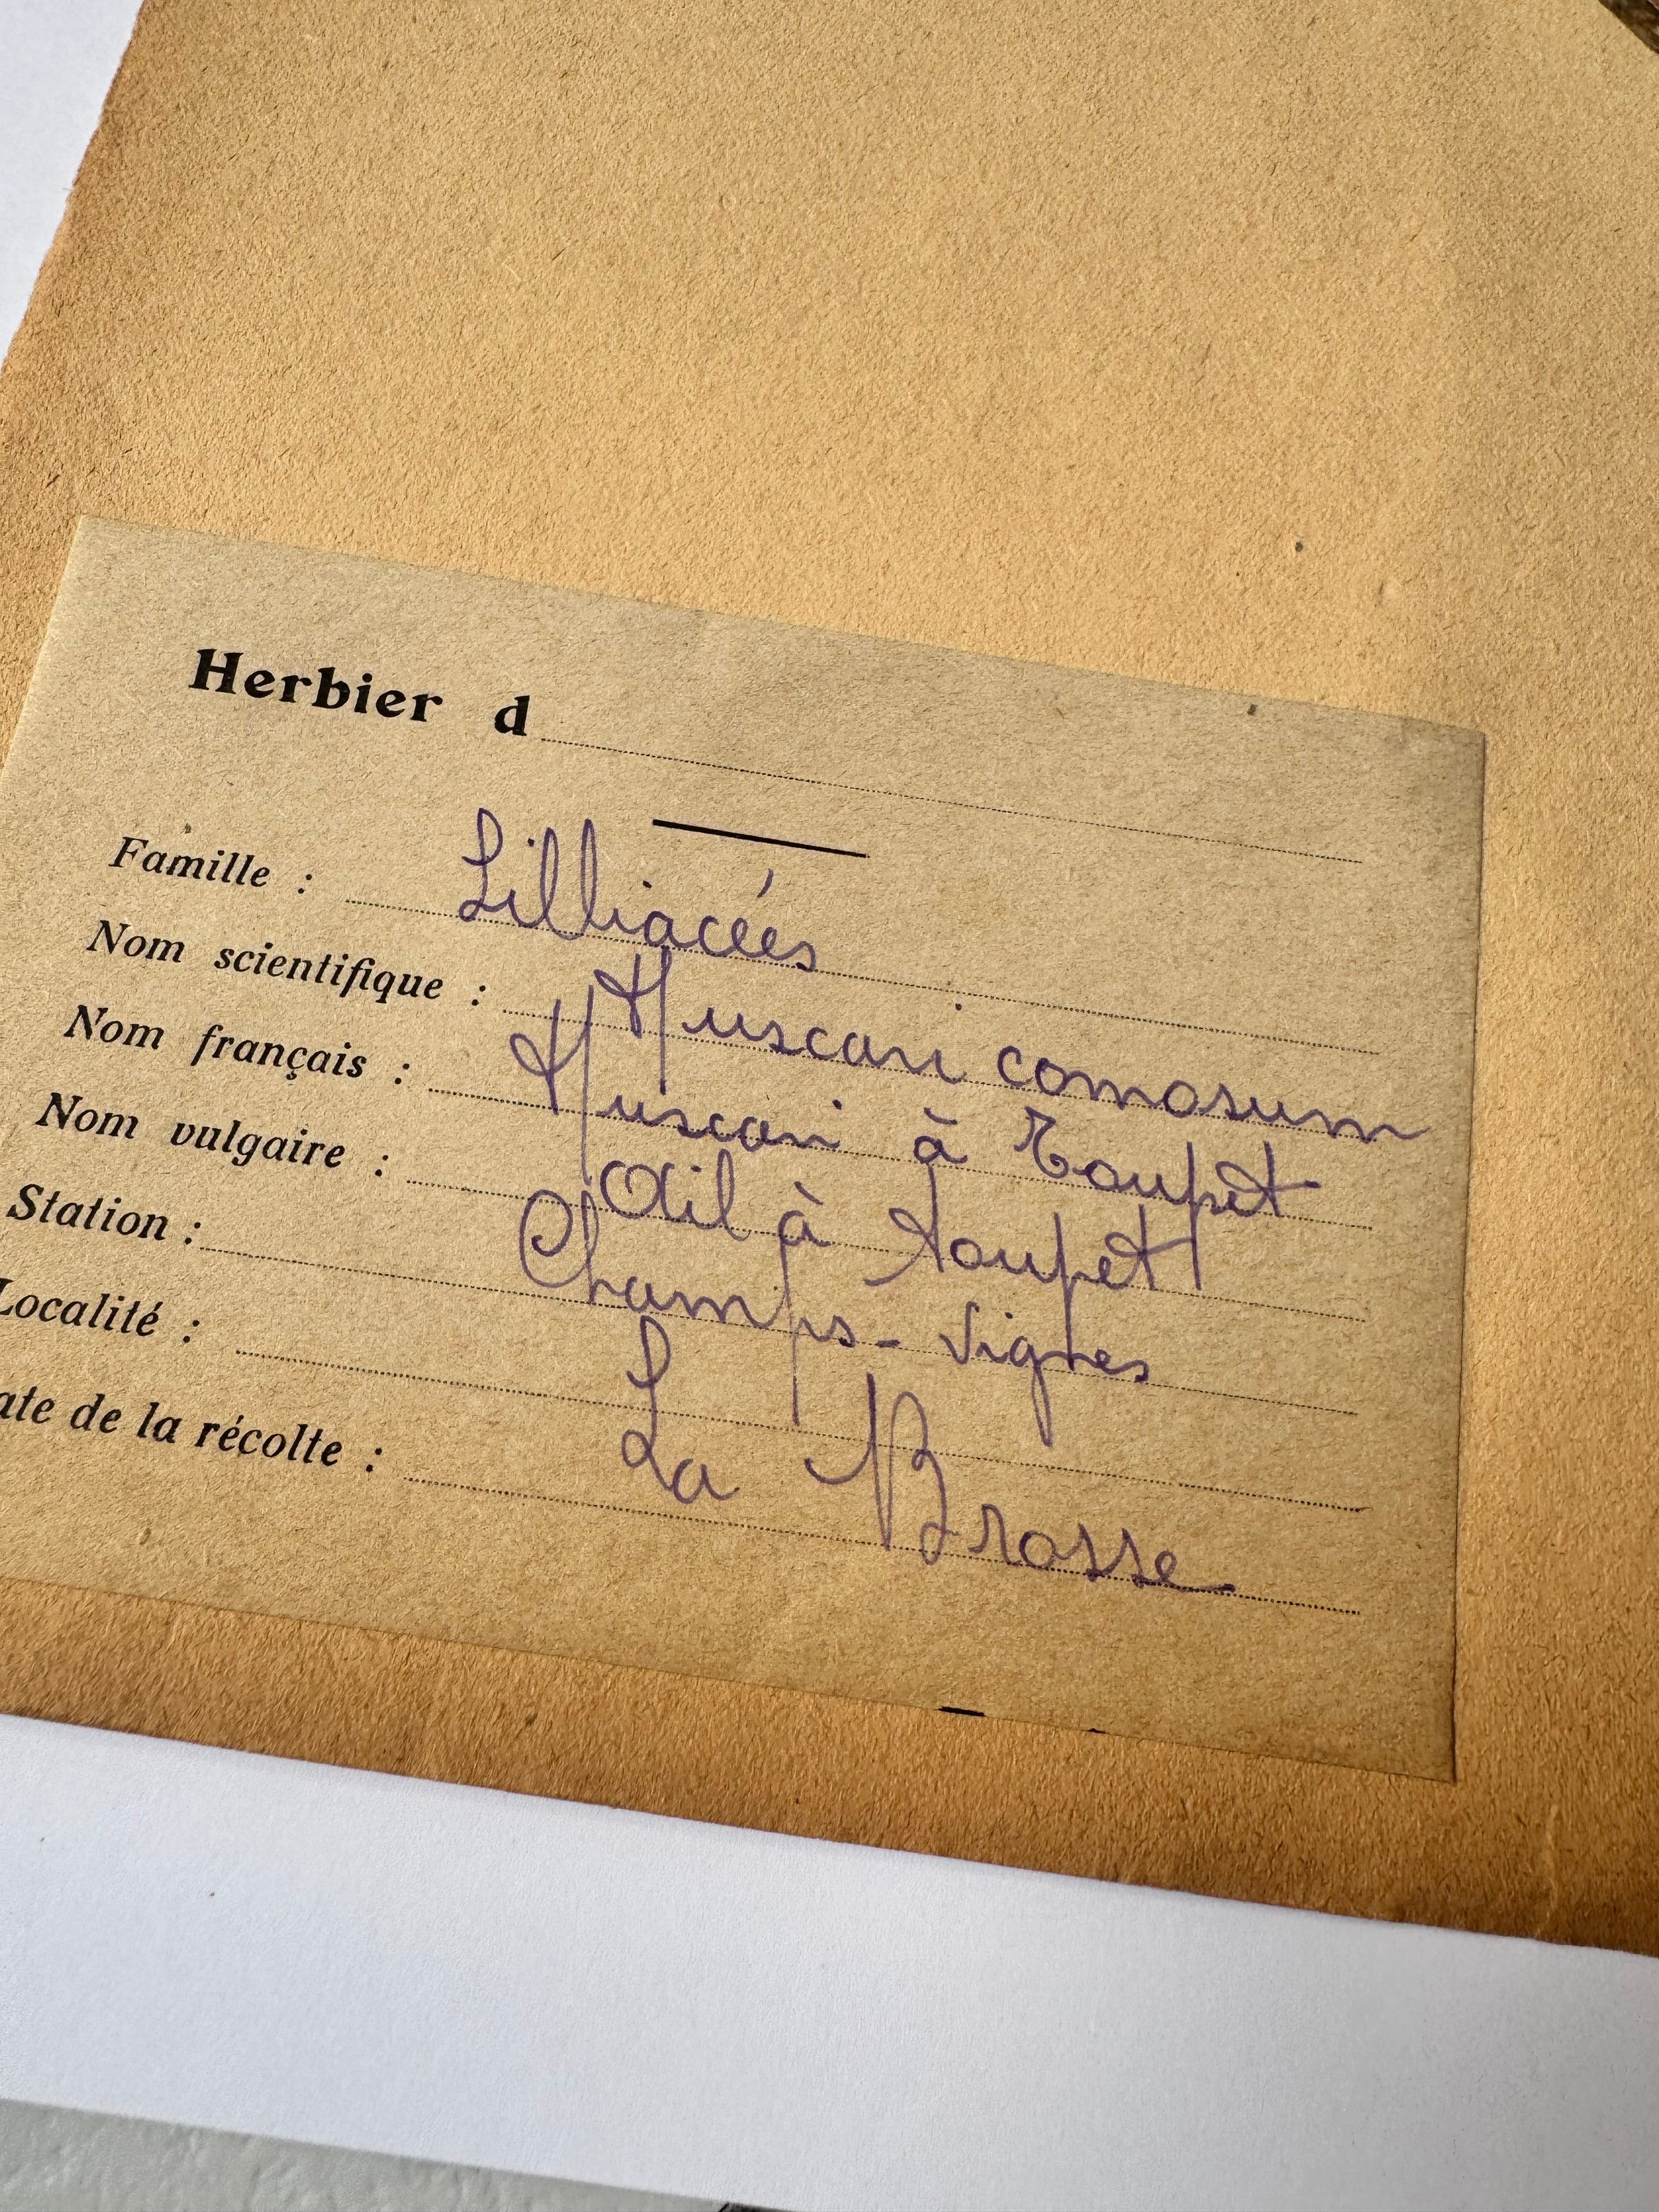 Herbier d
Famille : Lilliacées
Nom scientifique : Muscari comosum
Nom français : Muscari à Toupet
Nom vulgaire : Ail à toupet
Station : Champs - Vignes
Localité : La Brosse
ate de la récolte :